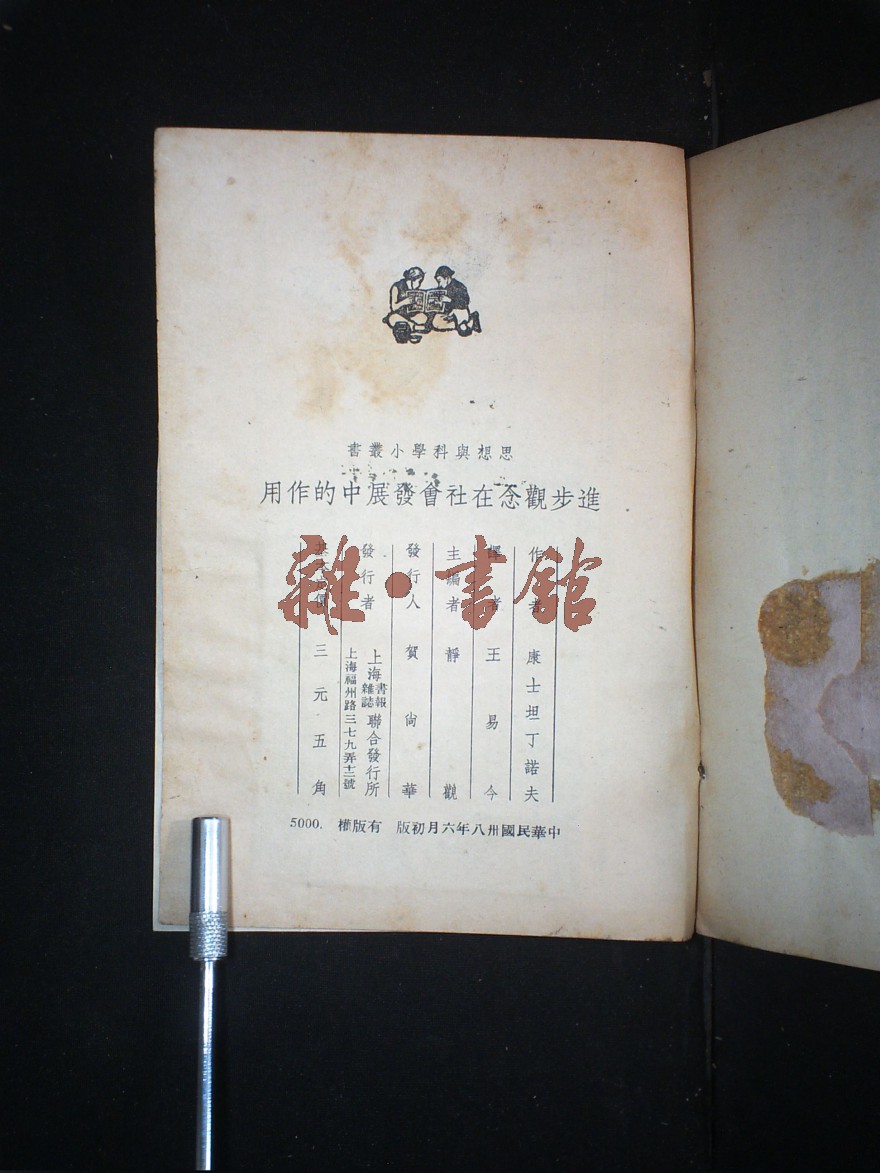 思想與科學小叢書
進步觀念在社會發展中的作用
作者 康士坦丁諾夫
譯者 王易今
主編者 靜觀
發行人 賀尙華
發行者 上海書報雜誌聯合發行所
上海福州路三七九弄十二號
基本定價 三元五角
中華民國卅八年六月初版 有版權 5000.
雜·書館